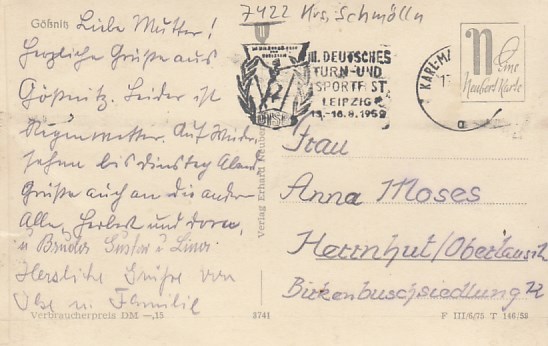 7422 Krs. Schmölln
Gößnitz
Liebe Mutter!
Herzliche Grüße aus
Gößnitz. Leider ist
Regenwetter. Auf Wieder
sehen bis dinstag Abend
Grüße auch an die andern
Alle, Herbert und
u Bruder Gustav u
Herzliche Grüße von
u Familie
Verbraucherpreis DM —,15
Verlag Erhard Neubert
3741
III. DEUTSCHES
TURN-UND
SPORTFEST
LEIPZIG
13.-16.8.1959
KARL-MA
a
N
Eine
Neubert Karte
Frau
Anna Moses
Herrnhut/Oberlausitz
Birkenbuschsiedlung 72
F III/6/75 T 146/58